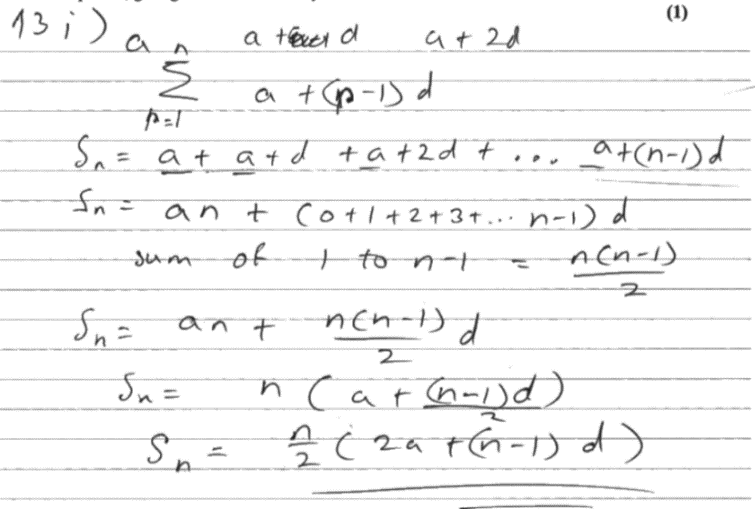 (1)
13 i) a a + d a + 2d
n
Σ a + (p-1) d
p=1
Sn = a + a + d + a + 2d + ... a + (n-1) d
Sn = an + (0+1+2+3+... n-1) d
sum of 1 to n-1 = n(n-1)/2
Sn = an + n(n-1)/2 d
Sn = n (a + (n-1)d/2)
Sn = n/2 (2a + (n-1) d)